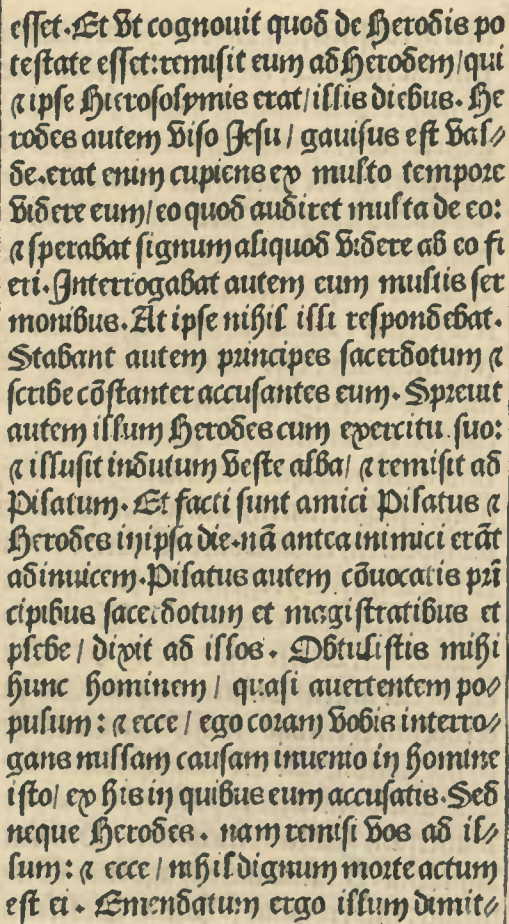 esset. Et vt cognouit quod de Herodis po
testate esset: remisit eum ad Herodem/ qui
⁊ ipse Hierosolymis erat/ illis diebus. He
rodes autem viso Jesu/ gauisus est val⸗
de. erat enim cupiens ex multo tempore
videre eum/ eo quod audiret multa de eo:
⁊ sperabat signum aliquod videre ab eo fi
eri. Interrogabat autem eum multis ser
monibus. At ipse nihil illi respondebat.
Stabant autem principes sacerdotum ⁊
scribe cōstanter accusantes eum. Spreuit
autem illum Herodes cum exercitu suo:
⁊ illusit indutum veste alba/ ⁊ remisit ad
Pilatum. Et facti sunt amici Pilatus ⁊
Herodes in ipsa die. nā antea inimici erāt
adinuicem. Pilatus autem cōuocatis prī
cipibus sacerdotum et magistratibus et
plebe/ dixit ad illos. Obtulistis mihi
hunc hominem/ quasi auertentem po⸗
pulum: ⁊ ecce/ ego coram vobis interro⸗
gans nullam causam inuenio in homine
isto/ ex his in quibus eum accusatis. Sed
neque Herodes. nam remisi vos ad il⸗
lum: ⁊ ecce/ nihil dignum morte actum
est ei. Emendatum ergo illum dimit⸗